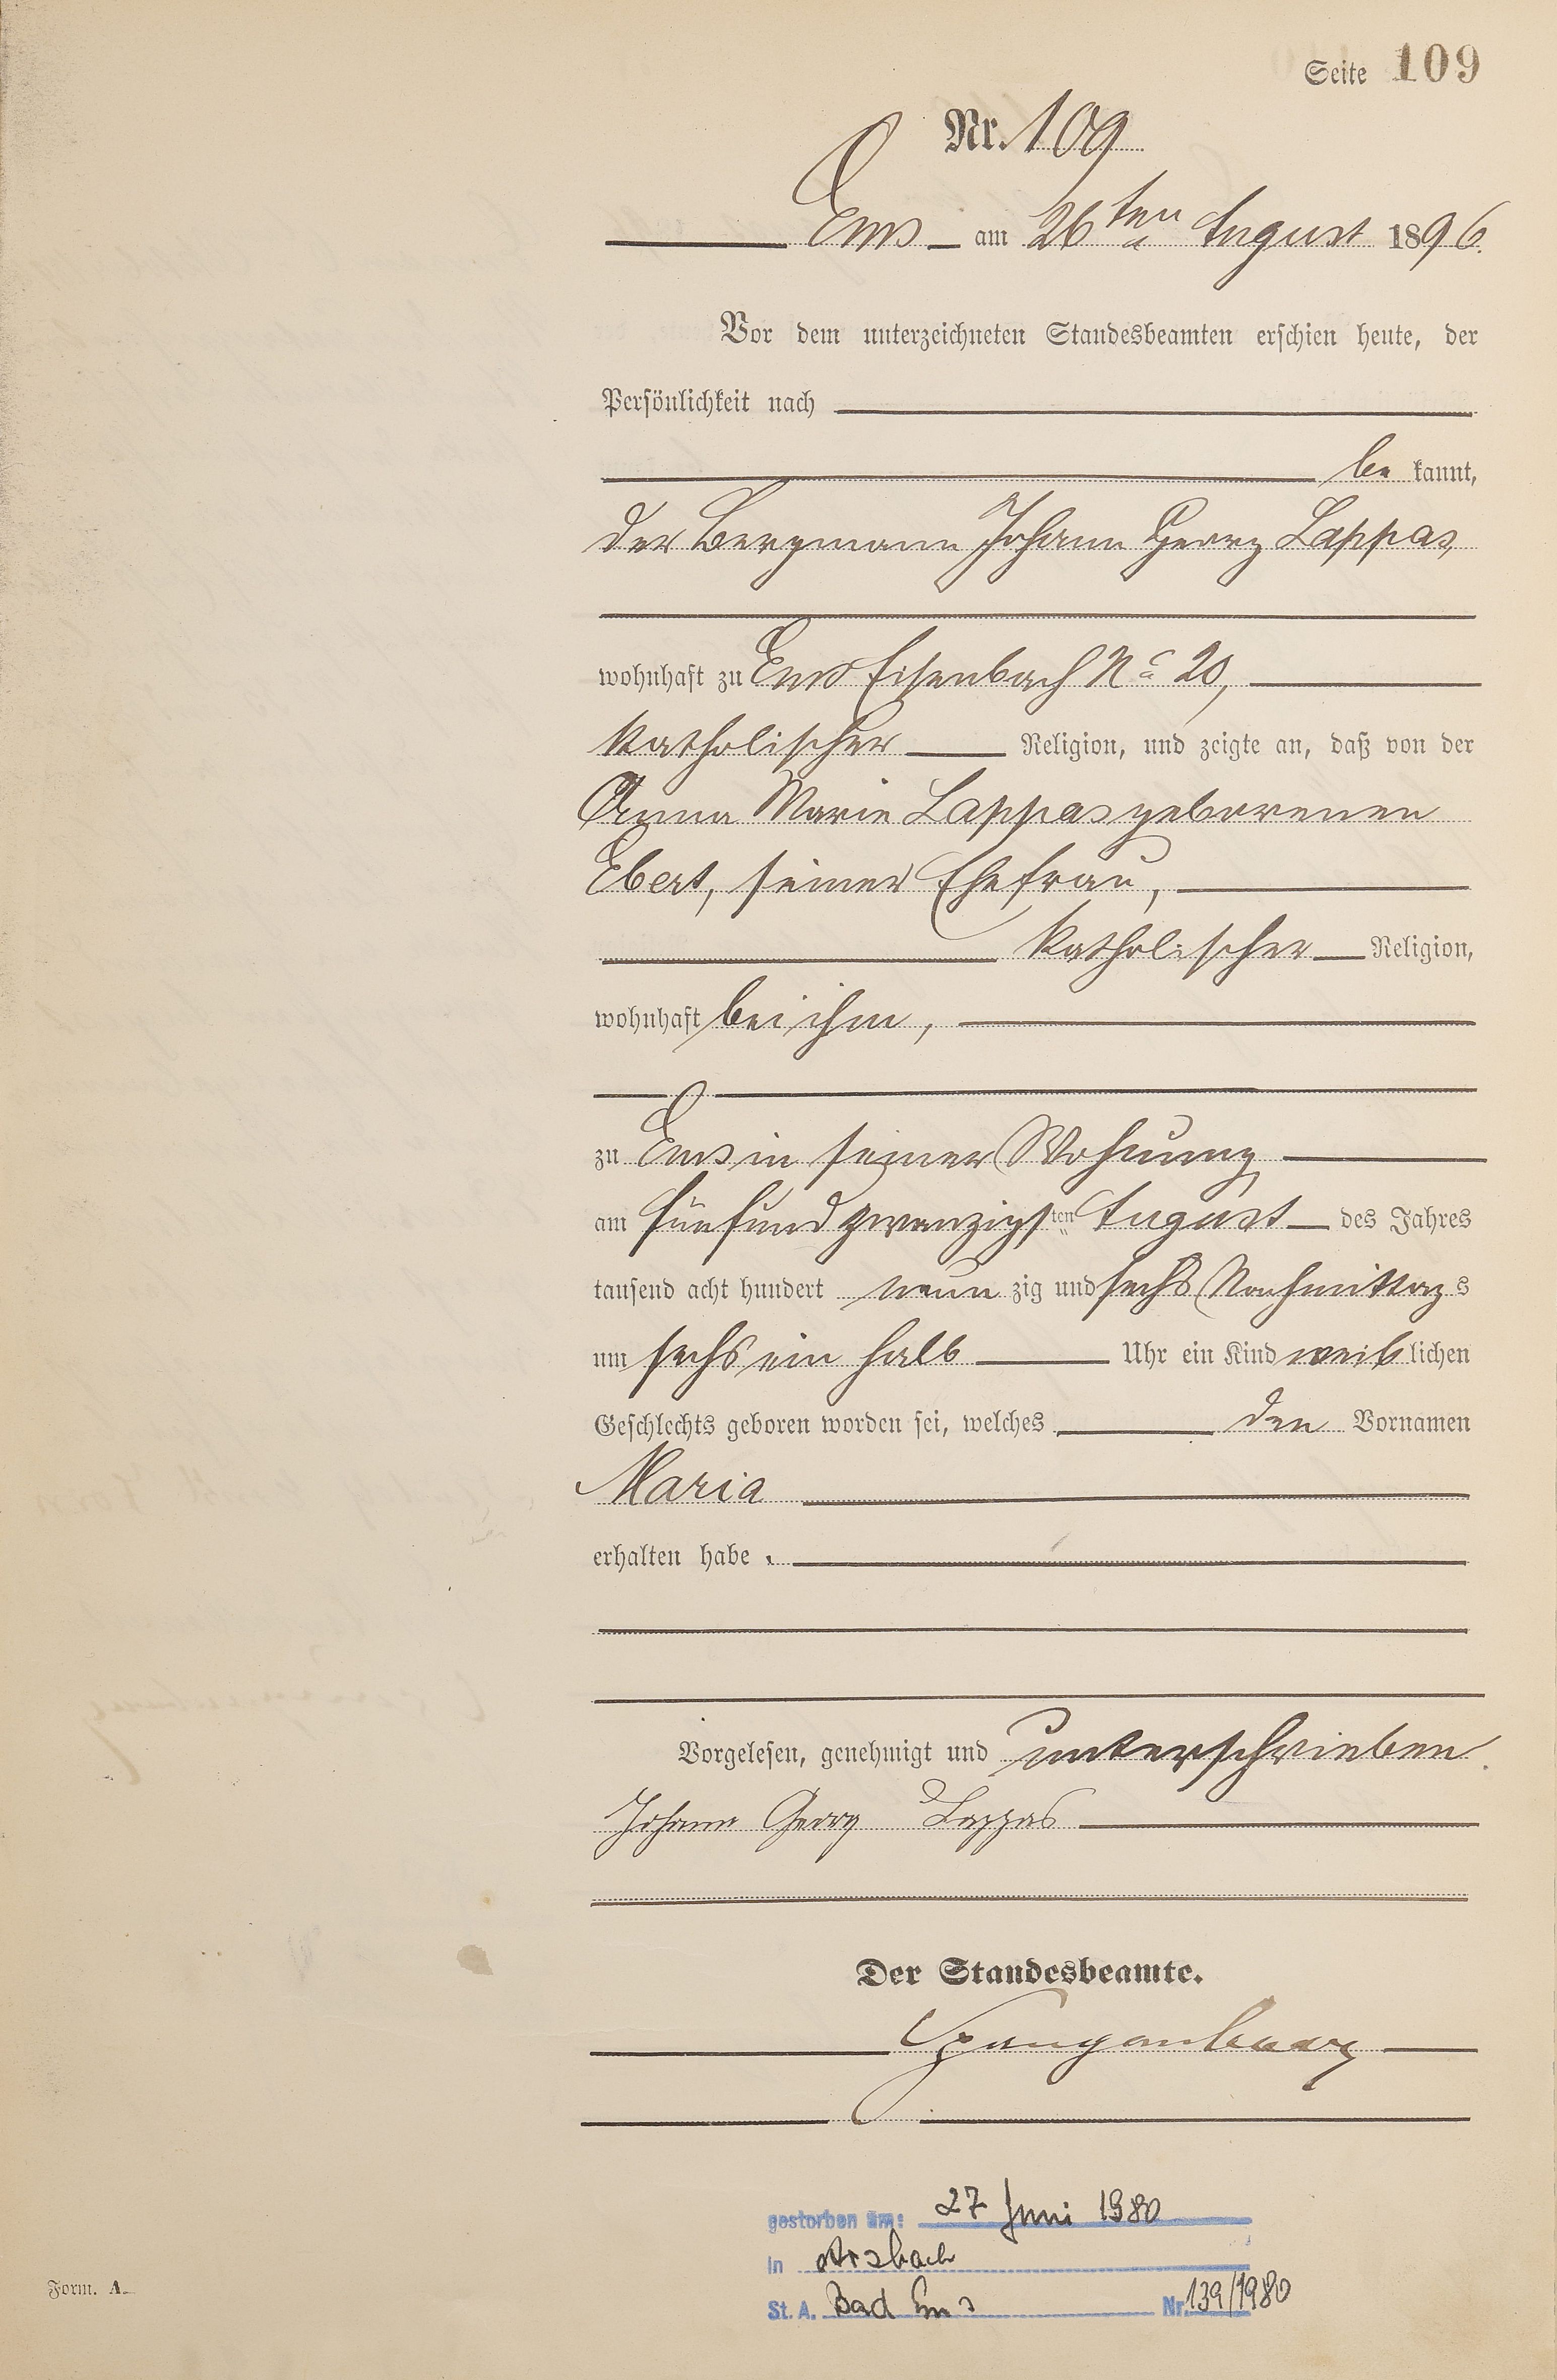 Seite 109
Nr. 109
Ems am 26ten August 1896.
Vor dem unterzeichneten Standesbeamten erschien heute, der
Persönlichkeit nach
be kannt,
der Bergmann Johann Georg Lappas,
wohnhaft zu Ems Eisenbach No 20,
katholischer Religion, und zeigte an, daß von der
Anna Marie Lappas geborenen
Ebert, seiner Ehefrau,
katholischer Religion,
wohnhaft bei ihm,
zu Ems in seiner Wohnung
am fünfundzwanzigsten August des Jahres
tausend acht hundert neun zig und sechs Nachmittag s
um sechs ein halb Uhr ein Kind weib lichen
Geschlechts geboren worden sei, welches den Vornamen
Maria
erhalten habe.
Vorgelesen, genehmigt und unterschrieben.
Johann Georg Lappas
Der Standesbeamte.
gestorben am: 27 Juni 1980
in Arzbach
St. A. Bad Ems Nr. 139/1980
Form. A.